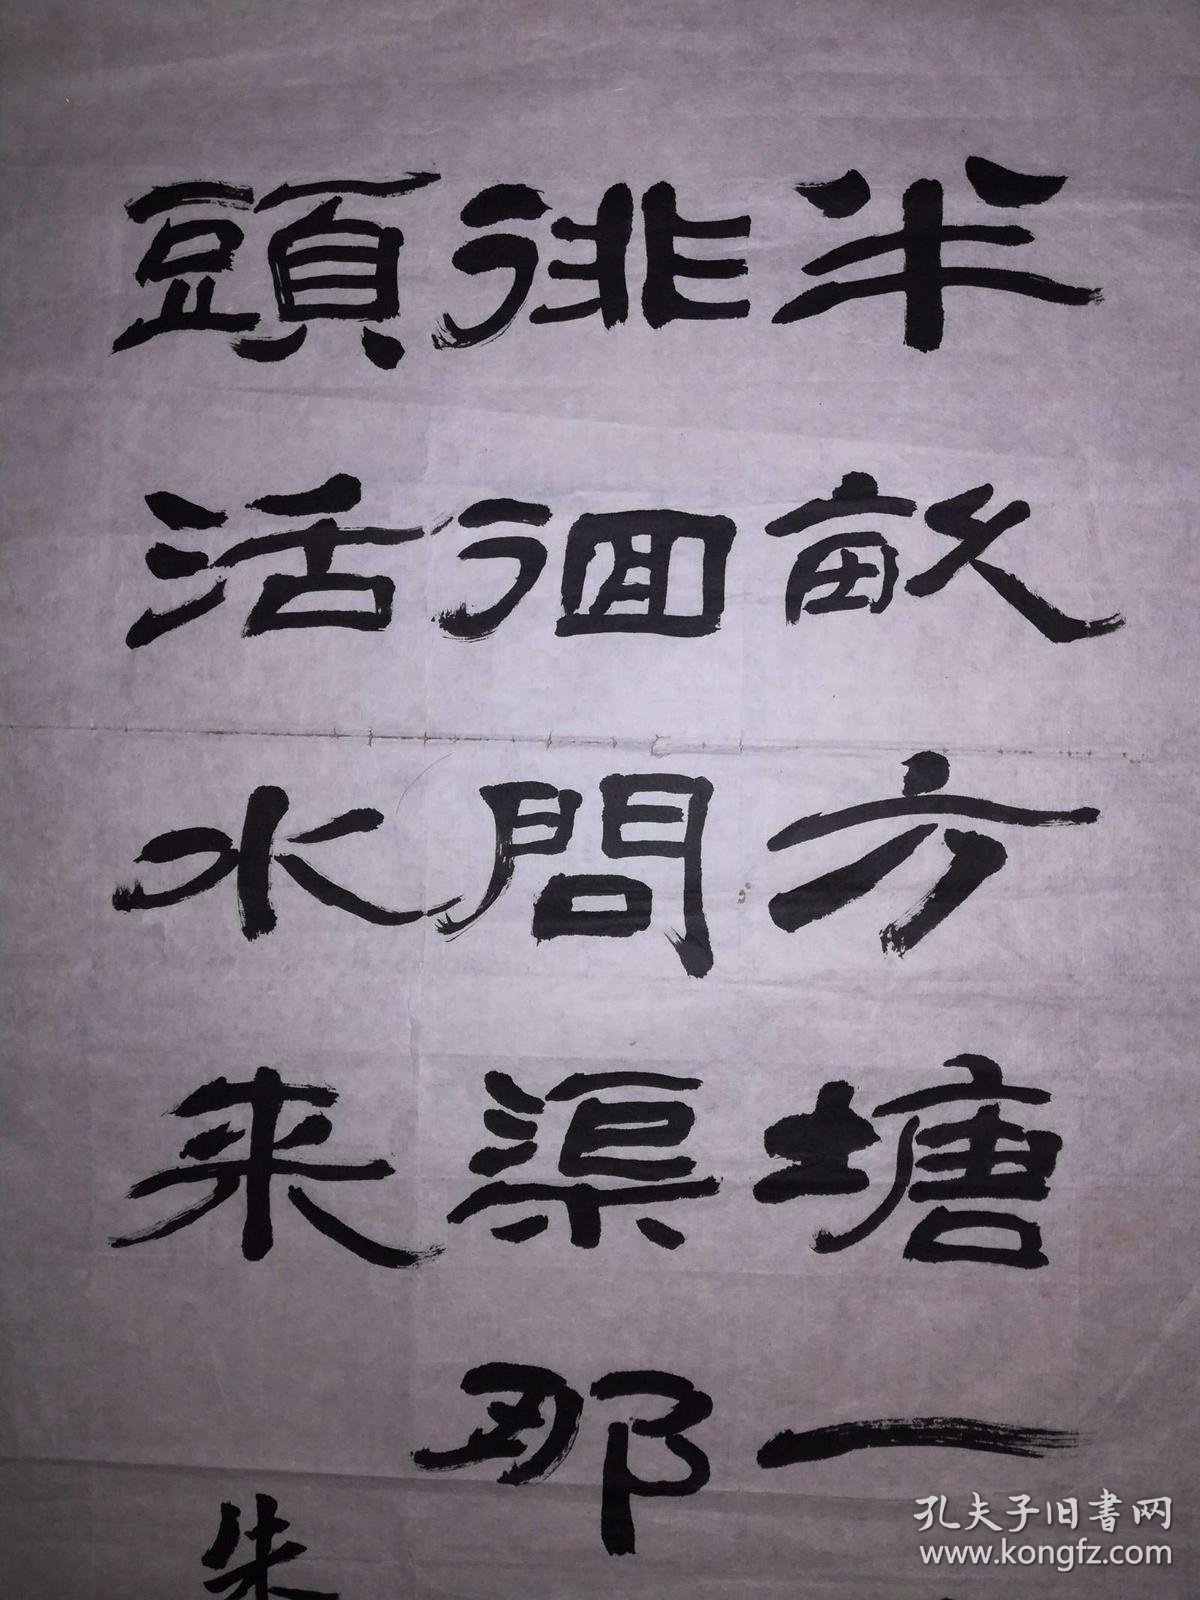 半畝方塘一
徘徊問渠那
頭活水来
朱
孔夫子旧書网
www.kongfz.com